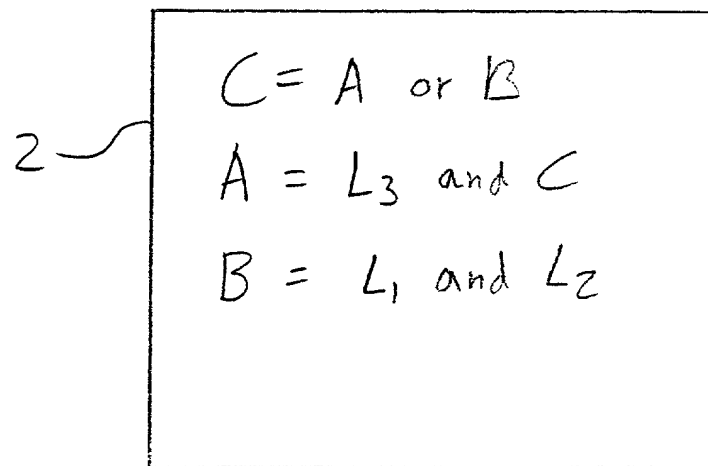 C = A or B
2
A = L₃ and C
B = L₁ and L₂